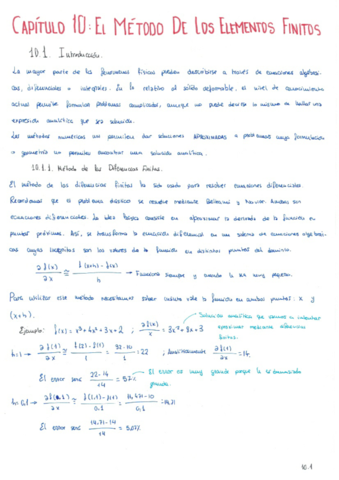 CAPÍTULO 10: EL MÉTODO DE LOS ELEMENTOS FINITOS
10.1. Introducción.
La mayor parte de los fenómenos físicos pueden describirse a través de ecuaciones algebrai-
cas, diferenciales o integrales. En lo relativo al sólido deformable, el nivel de conocimiento
actual permite formular problemas complicados, aunque no puede decirse lo mismo de hallar una
expresión analítica que sea solución.
Los métodos numéricos nos permiten dar soluciones APROXIMADAS a problemas cuya formulación
o geometría no permiten encontrar una solución analítica.
10.1.1. Método de las Diferencias Finitas.
El método de las diferencias finitas ha sido usado para resolver ecuaciones diferenciales.
Recordemos que el problema elástico se resuelve mediante Beltrami y Navier. Ambas son
ecuaciones diferenciales. La idea básica consiste en aproximar la derivada de la función en
puntos próximos. Así, se transforma la ecuación diferencial en un sistema de ecuaciones algebrai-
cas cuyas incógnitas son los valores de la función en distintos puntos del dominio.
∂f(x)/∂x ≅ (f(x+h) - f(x))/h → Funciona siempre y cuando h sea muy pequeño.
Para utilizar este método necesitamos saber cuánto vale la función en ambos puntos: x y
(x+h).
Solución analítica que vamos a intentar aproximar mediante diferencias finitas.
Ejemplo: f(x) = x³+4x²+3x+2 ; ∂f(x)/x = 3x²+8x+3
h=1 → ∂f(1)/∂x ≅ (f(2)-f(1))/1 = (32-10)/1 = 22 ; Analíticamente ∂f(1)/∂x = 14.
El error será: (22-14)/14 = 57% → El error es muy grande porque h es demasiado grande.
h=0,1 → ≅ (f(1,1)-f(1))/0,1 = (11,471-10)/0,1 = 14,71
El error será: (14,71-14)/14 = 5,07%
10.1